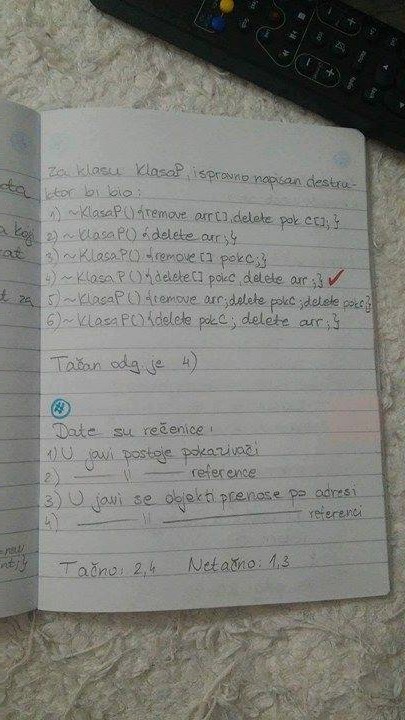 Za klasu KlasaP, ispravno napisan destru-
ktor bi bio:
1) ~KlasaP(){remove arr[],delete pok C[];}
2) ~KlasaP(){delete arr;}
3) ~KlasaP(){remove[] pokC;}
4) ~KlasaP(){delete[] pokC,delete arr;} ✓
5) ~KlasaP(){remove arr;delete pokC;delete pokC;}
6) ~KlasaP(){delete pokC; delete arr;}
Tačan odg.je 4)
#
Date su rečenice:
1) U javi postoje pokazivači
2) —— 11 —— reference
3) U javi se objekti prenose po adresi
4) —— 11 —— referenci
Tačno: 2,4 Netačno: 1,3